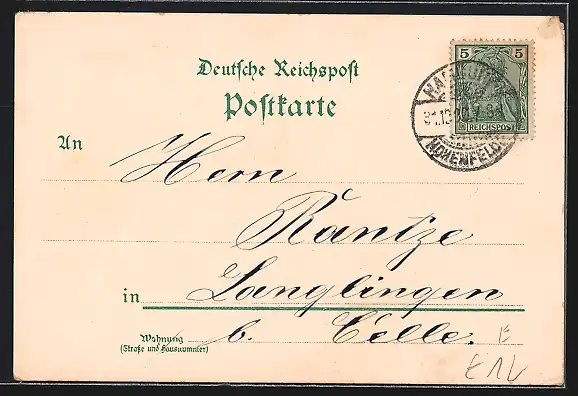 Deutsche Reichspost
Postkarte
5 5
REICHSPOST
HAMBURG
31.12.
HOHENFELDE
An
Herrn
Rantze
in Langlingen
b. Celle.
Wohnung
(Straße und Hausnummer)
E